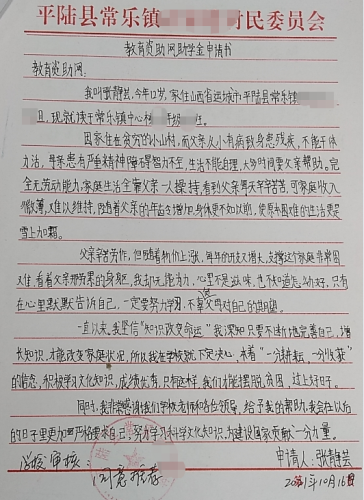 平陆县常乐镇 村民委员会
教育资助网助学金申请书
教育资助网:
我叫张静芸,今年12岁,家住山西省运城市平陆县常乐镇
,现就读于常乐镇中心校 班。
因家住在贫穷的小山村,而父亲从小有病致身患残疾,不能干体
力活,母亲患有严重精神障碍智力不全,生活不能自理,大多时间要父亲帮助。完
全无劳动能力,家庭生活全靠父亲一人操持,看到父亲每天辛辛苦苦,可家庭收入
微薄,难以维持,随着父亲的年龄今增加,身体更不如以前,使原本困难的生活更是
雪上加霜。
父亲辛苦劳作,但随着物价上涨,每年的开支又增大,支撑这个家庭非常困
难,看着父亲那劳累的身躯,我却无能为力,心里不是滋味,也不知道怎么办好,只有
在心里默默告诉自己,一定要努力学习,不辜负父母对自己的期望。
一直以来,我坚信“知识改变命运”我深知只要不断地完善自己,增
长知识,才能改变家庭状况,所以我在学校就下定决心,本着“一分耕耘,一分收获”
的信念,积极学习文化知识,成绩优秀,只有这样,我们才能摆脱贫困,过上好日子。
同时,我非常感谢我们学校老师和各位领导,给予我的帮助,我会在以后
的日子里更加严格要求自己,努力学习科学文化知识,为建设国家贡献一分力量。
学校审核: 申请人:张静芸
同意推荐 2021年10月16日